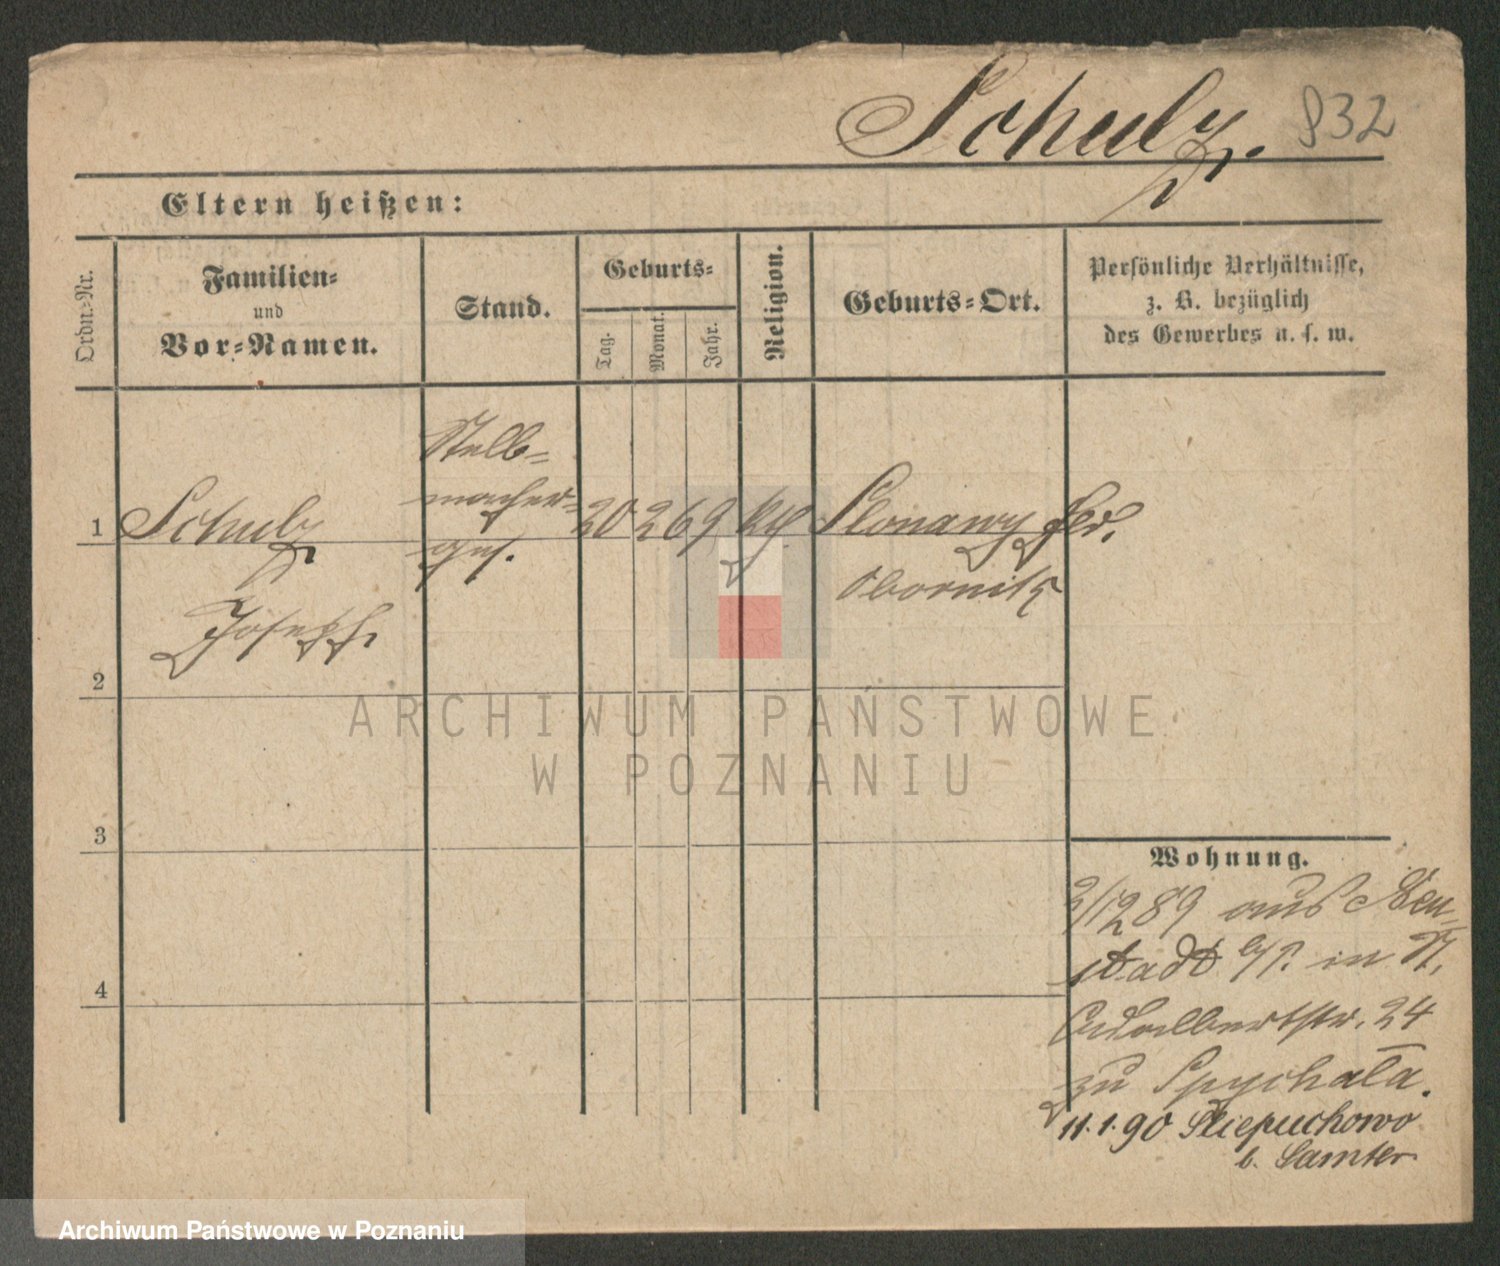 Schulz. 832
Eltern heißen:
Ordn.-Nr.
Familien-
und
Vor-Namen.
Stand.
Geburts-
Tag.
Monat.
Jahr.
Religion.
Geburts-Ort.
Persönliche Verhältnisse,
z. B. bezüglich
des Gewerbes u. s. w.
Stell-
macher-
1 Schulz 20 2 69 kth Slonawy
ges.
Obornik
Joseph
2
3
4
ARCHIWUM PAŃSTWOWE
W POZNANIU
Wohnung.
2/12 89 aus Neu-
stadt b/P. in St.
Adalbertstr. 24
zu Spychała.
11.1.90 Sliepuchowo
b. Samter
Archiwum Państwowe w Poznaniu